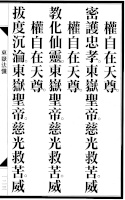 權自在天尊
密護忠孝東嶽聖帝慈光救苦威
權自在天尊
教化仙靈東嶽聖帝慈光救苦威
權自在天尊
拔度沉淪東嶽聖帝慈光救苦威